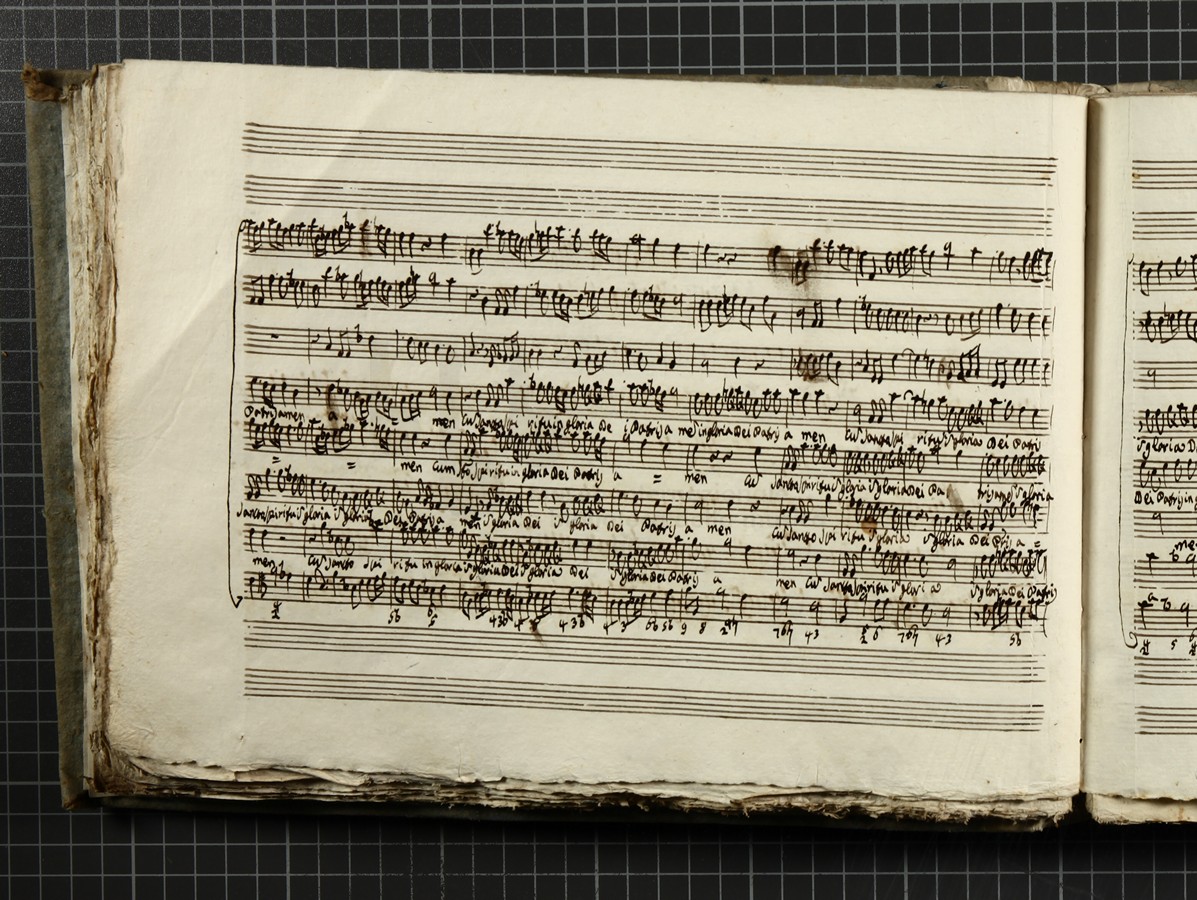 Patrij amen a = men Cu Sancto Spi ritu in gloria De i Patrij a me in gloria Dei Patrij a men Cu Sancto Spi ritu gloria Dei Patrij
= = men Cum Sto Spiritu in gloria Dei Patrij a = men Cu Sancto Spiritu gloria gloria Dei Pa trij ame gloria
Sancto Spiritu gloria gloria Dei Patrij a men gloria Dei gloria Dei Patrij a men Cu Sancto Spi ritu gloria gloria Dei Ptrij a =
men Cu Sancto Spi ritu in gloria gloria Dei gloria Dei gloria Dei Patrij a men Cu Sancto Spiritu glori a gloria Dei Patrij
5b 6 5 4 3b 4 3b 4 3 6b 5b 9 8 7 6 4 3 6 7 6 4 3 5b
gloria D
Dei Patrij in
me